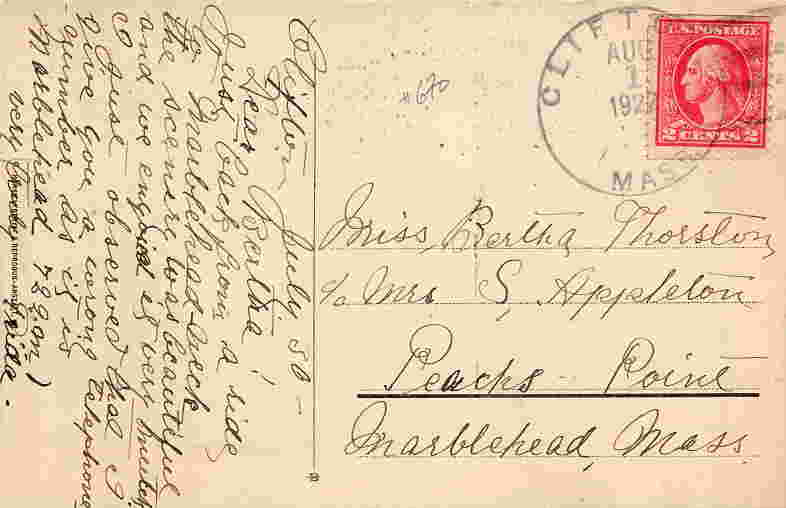 Clifton July 30 -
Dear Bertha!
Just back from a ride
to Marblehead-neck
the scenery was beautiful
and we enjoied it very mutch
I just observed that I
give you a wrong telephone
number as it is
Marblehead 782 m)
very
Frida.
#670
CLIFT
AUG
1
192
MASS
U.S. POSTAGE
2 CENTS 2
Miss, Bertha Thorston
c/o Mrs S, Appleton
Peachs Point
Marblehead, Mass